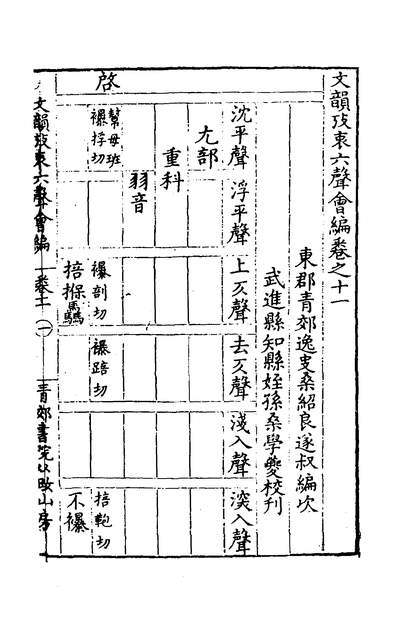 文韻攷衷六聲會編卷之十一
東郡青郊逸叟桑紹良遂叔編次
武進縣知縣姪孫桑學夔校刊
沈平聲 浮平聲 上仄聲 去仄聲 淺入聲 深入聲
尤部
重科
弱音
啓
幫母班
襮捊切 襮剖切 襮踣切 掊匏切
掊㨐 不襮
文韻攷衷六聲會編 卷十一 一 青郊書院 山房